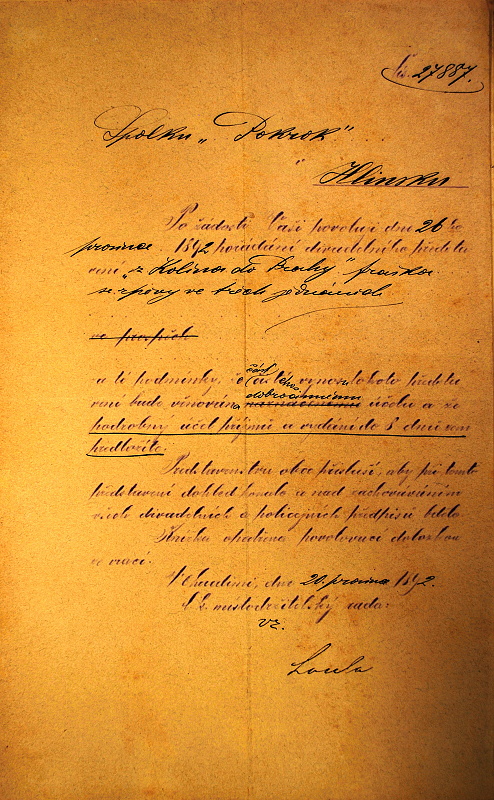 Čís. 27887.
Spolku „Pokrok"
v Hlinsku
Po žádosti Vaší povoluji dne 26 ho
prosince 1892 pořádání divadelního předsta
vení „z Kolína do Prahy" fraška
se zpěvy ve třech jednáních
ve prospěch
za té podmínky, že část čistého výnosu tohoto představ
vení bude věnována dobročinnému účelu a že
podrobný účet příjmů a vydání do 8 dnů sem
předložíte.
Představenstvu obce přísluší, aby při tomto
představení dohled konalo a nad zachováváním
všech divadelních a policejních předpisů bdělo
Knížka opatřena povolovací doložkou
se vrací.
V Chrudimi, dne 20. prosince 1892.
C. k. místodržitelský rada:
vz.